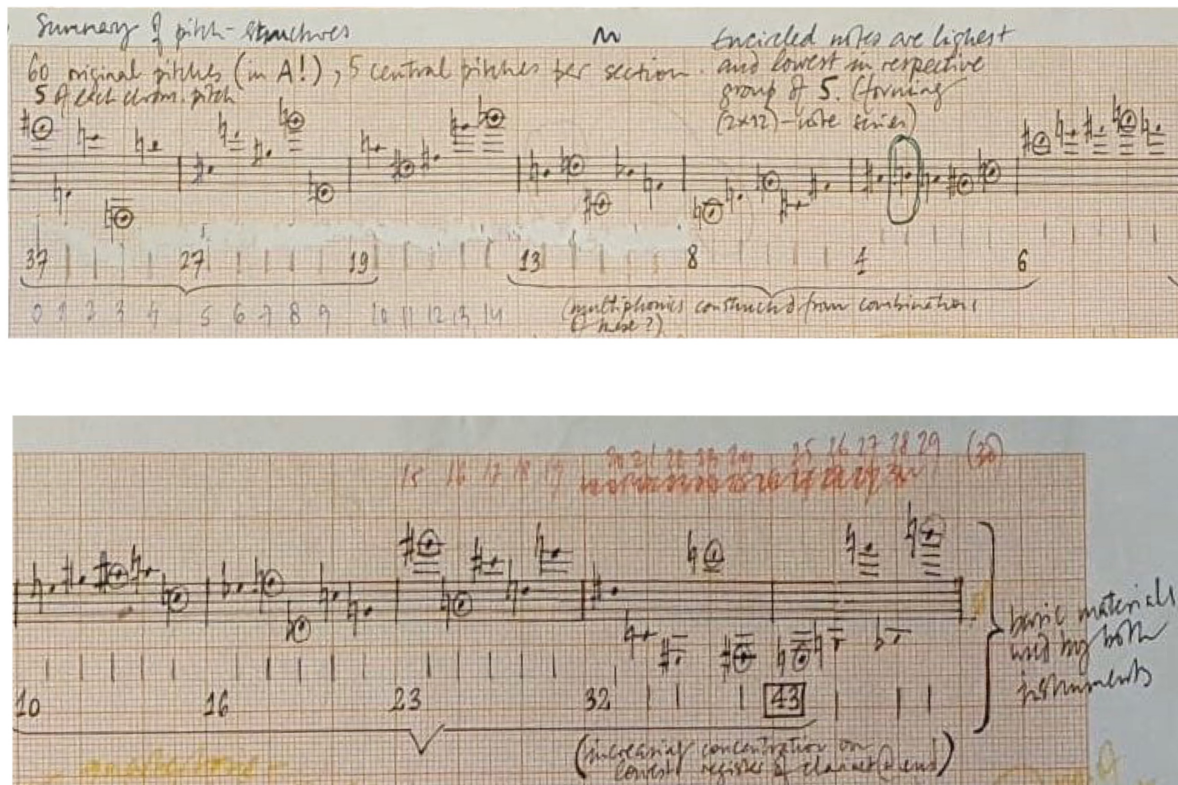 Summary of pitch-structures
60 original pitches (in A!), 5 central pitches per section.
5 of each chrom. pitch
Encircled notes are highest
and lowest in respective
group of 5. (forming
(2x12)-note series)
37 27 19 13 8 4 6
0 1 2 3 4 5 6 7 8 9 10 11 12 13 14
(multiphonics constructed from combinations
of these?)
15 16 17 18 19 20 21 22 23 24 25 26 27 28 29 (30)
10 16 23 32 43
basic materials
used by both
instruments
(increasing concentration on
lowest register of clarinet @ end)